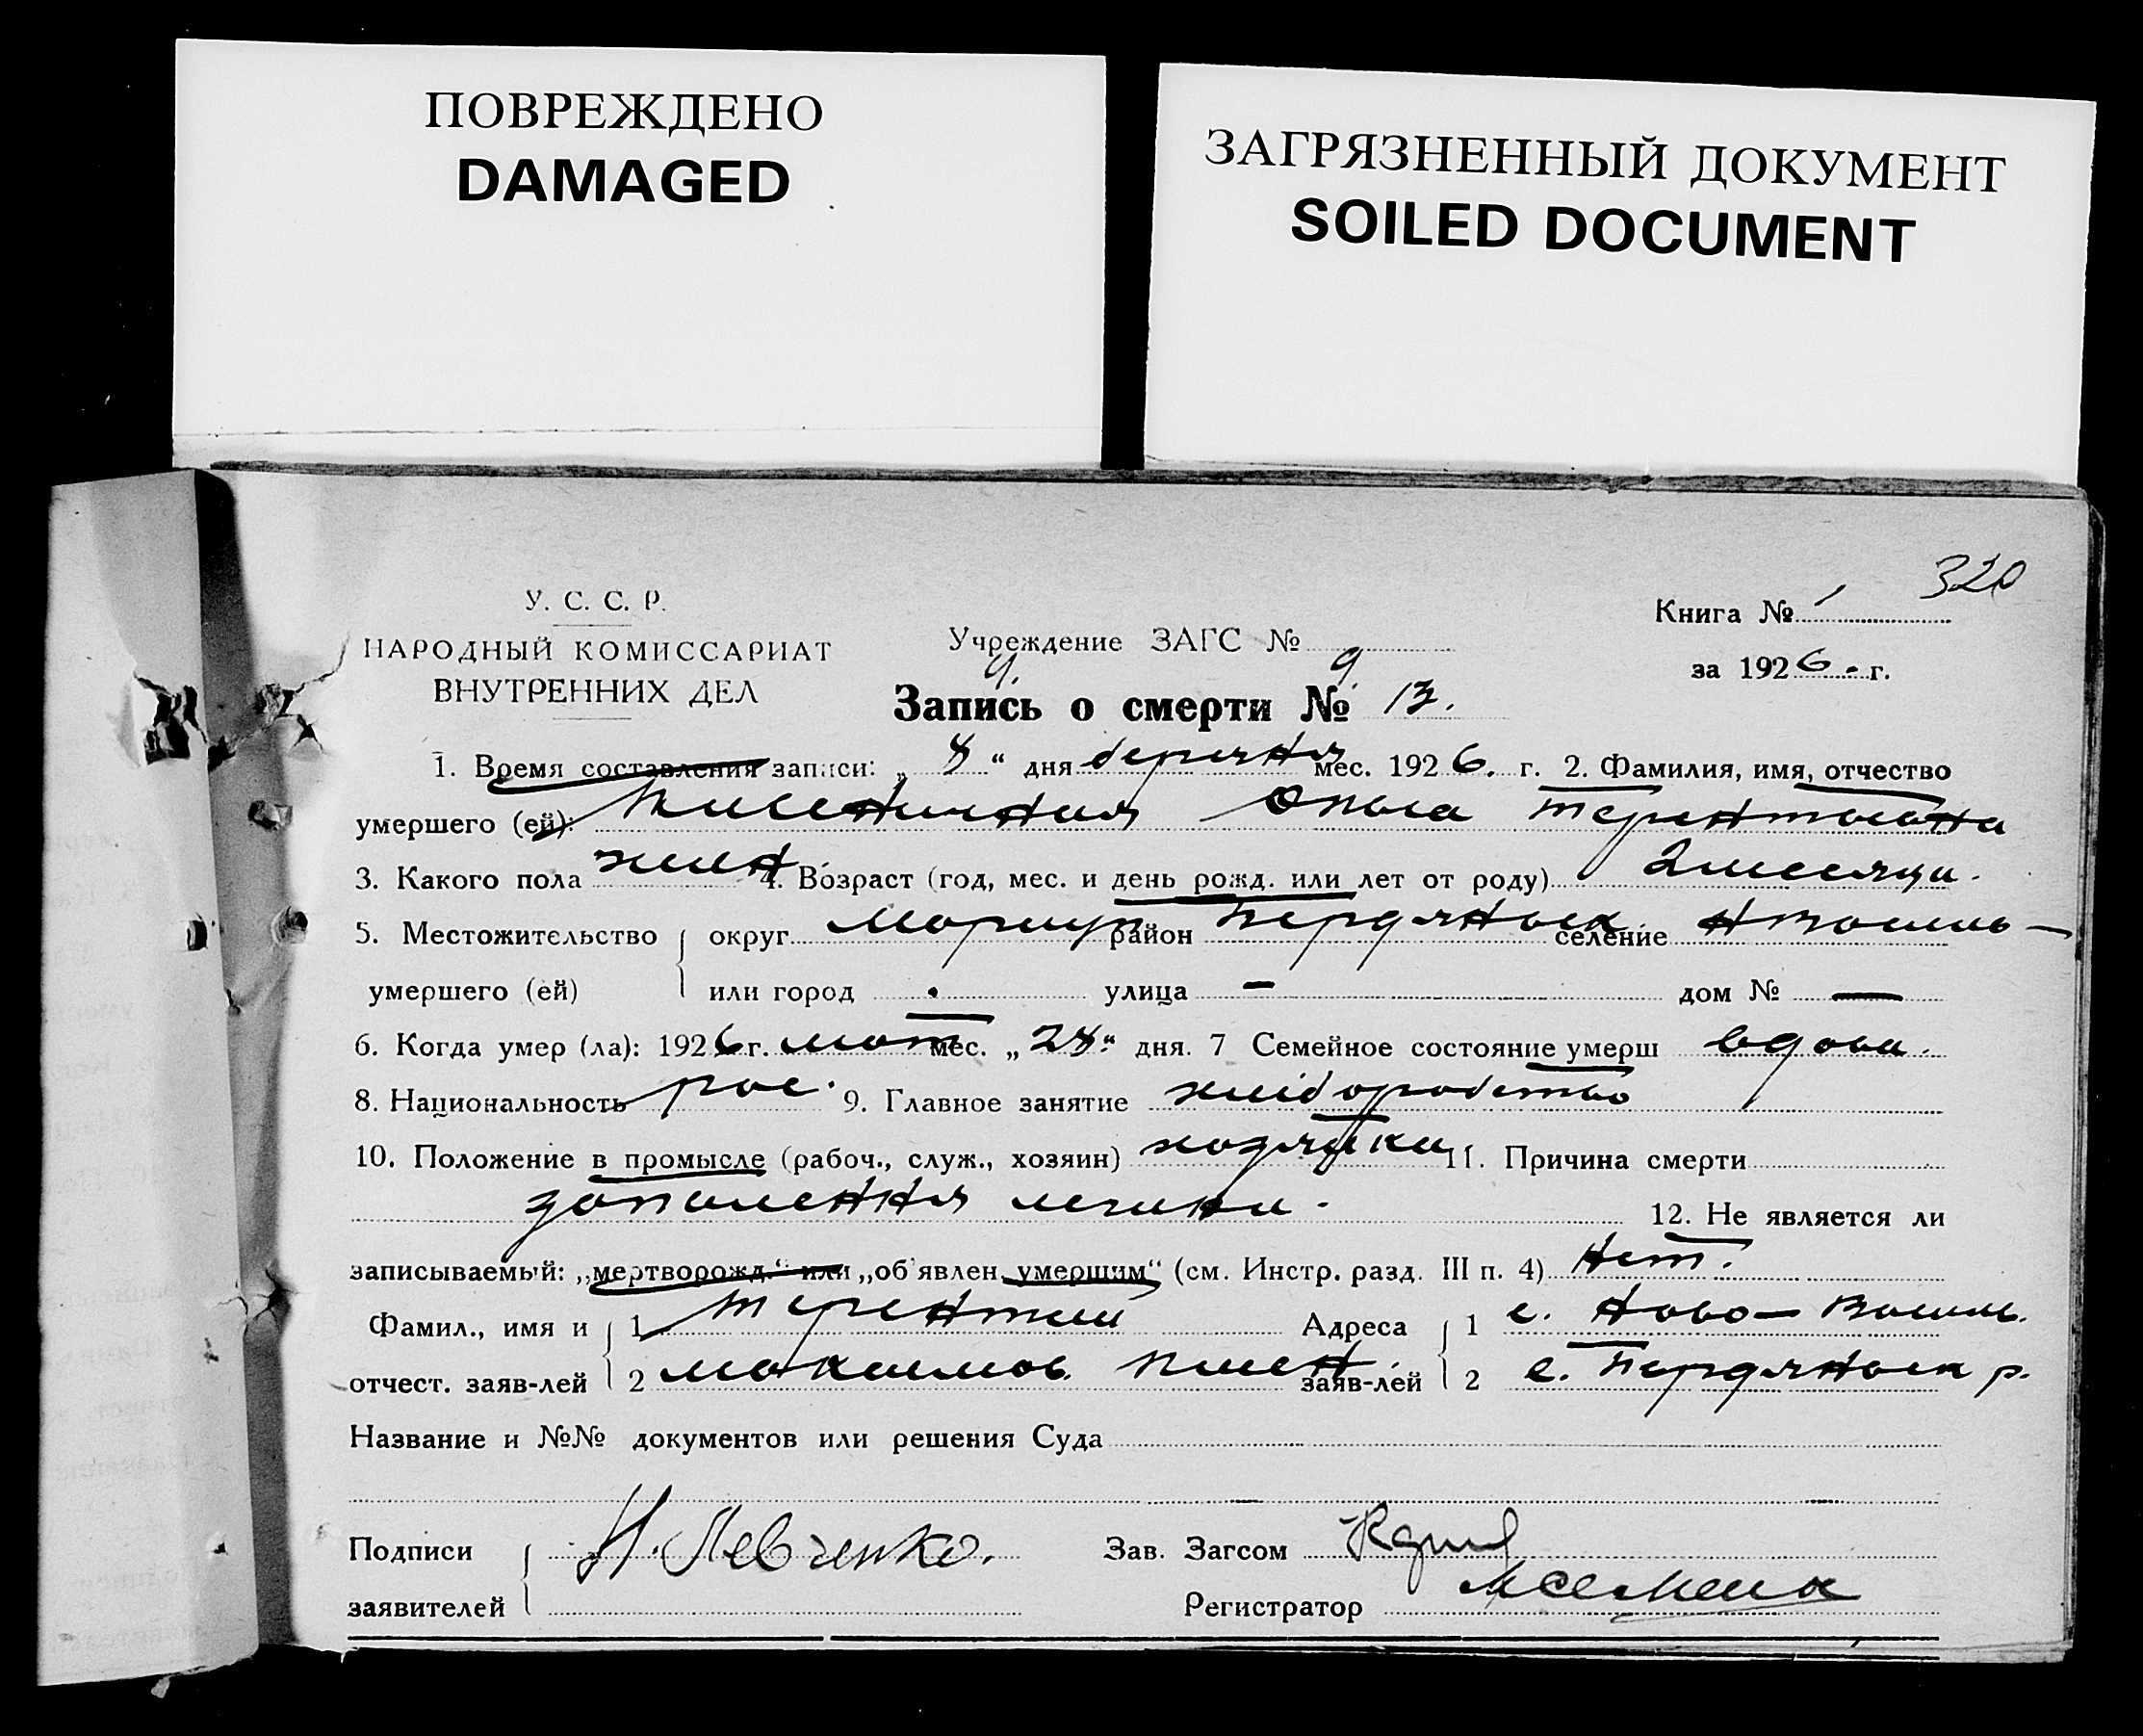 ПОВРЕЖДЕНО
DAMAGED
ЗАГРЯЗНЕННЫЙ ДОКУМЕНТ
SOILED DOCUMENT
320
У. С. С. Р.
НАРОДНЫЙ КОМИССАРИАТ
ВНУТРЕННИХ ДЕЛ
Учреждение ЗАГС №
Книга № 1
за 1926 г.
Запись о смерти № 13.
1. Время составления записи: „8“ дня березня мес. 1926. г. 2. Фамилия, имя, отчество
умершего (ей): Ольга Терентьевна
3. Какого пола жен 4. Возраст (год, мес. и день рожд. или лет от роду) 2 месяца.
5. Местожительство округ Мариуп район Бердянськ селение
умершего (ей) или город улица — дом № —
6. Когда умер (ла): 1926 г. лют мес. „28“ дня. 7 Семейное состояние умерш вдова.
8. Национальность рос. 9. Главное занятие хлiборобство
10. Положение в промысле (рабоч., служ., хозяин) 11. Причина смерти
запалення легких.
12. Не является ли
записываемый: „мертворожд.“ или „об'явлен умершим“ (см. Инстр. разд. III п. 4) Нет.
Фамил., имя и отчест. заяв-лей 1 Терентий
2 Максимов. Пшен.
Адреса заяв-лей 1 с. Ново-Васил.
2 с. Бердянськ р.
Название и №№ документов или решения Суда
Подписи заявителей Н. Левченко.
Зав. Загсом
Регистратор